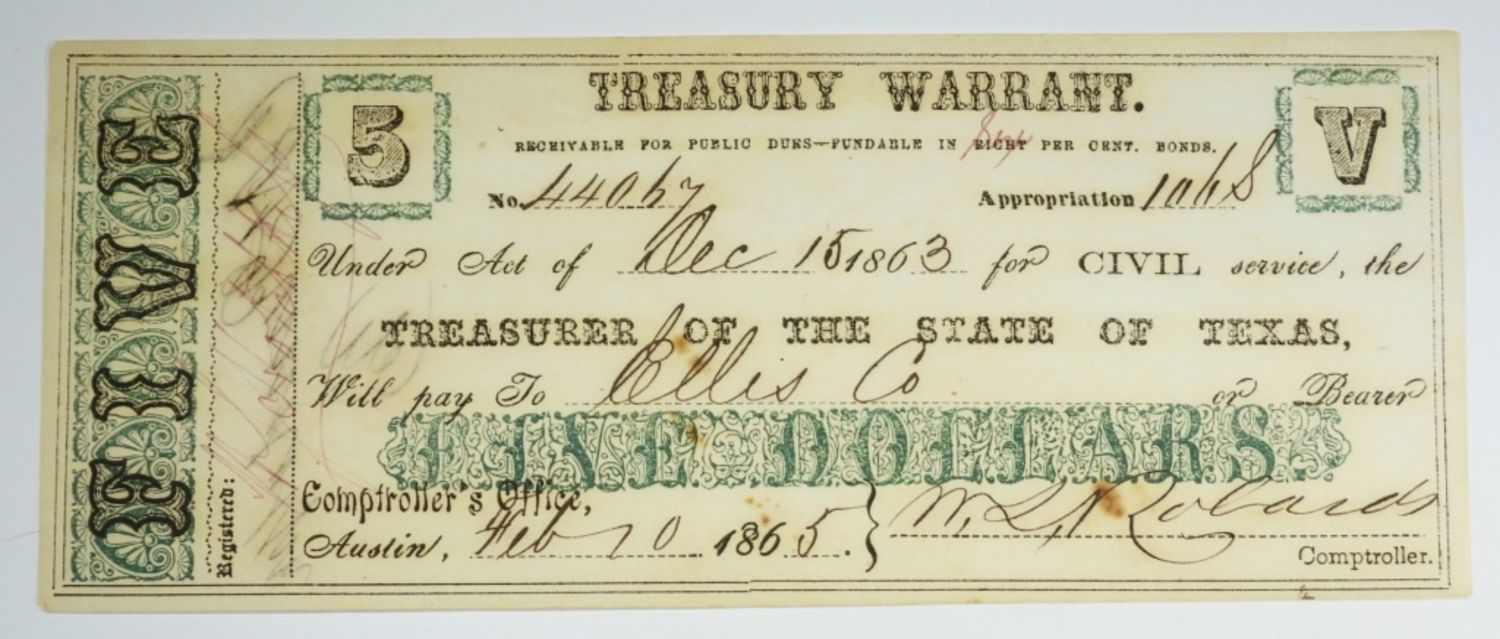 FIVE
Registered:
5
TREASURY WARRANT.
V
RECEIVABLE FOR PUBLIC DUES—FUNDABLE IN EIGHT PER CENT. BONDS.
No. 44067 Appropriation 1068
Under Act of Dec 15 1863 for CIVIL service, the
TREASURER OF THE STATE OF TEXAS,
Will pay To Ellis Co or Bearer
FIVE DOLLARS
Comptroller's Office,
Austin, Feb 10 1865. } W. L. Robards
Comptroller.